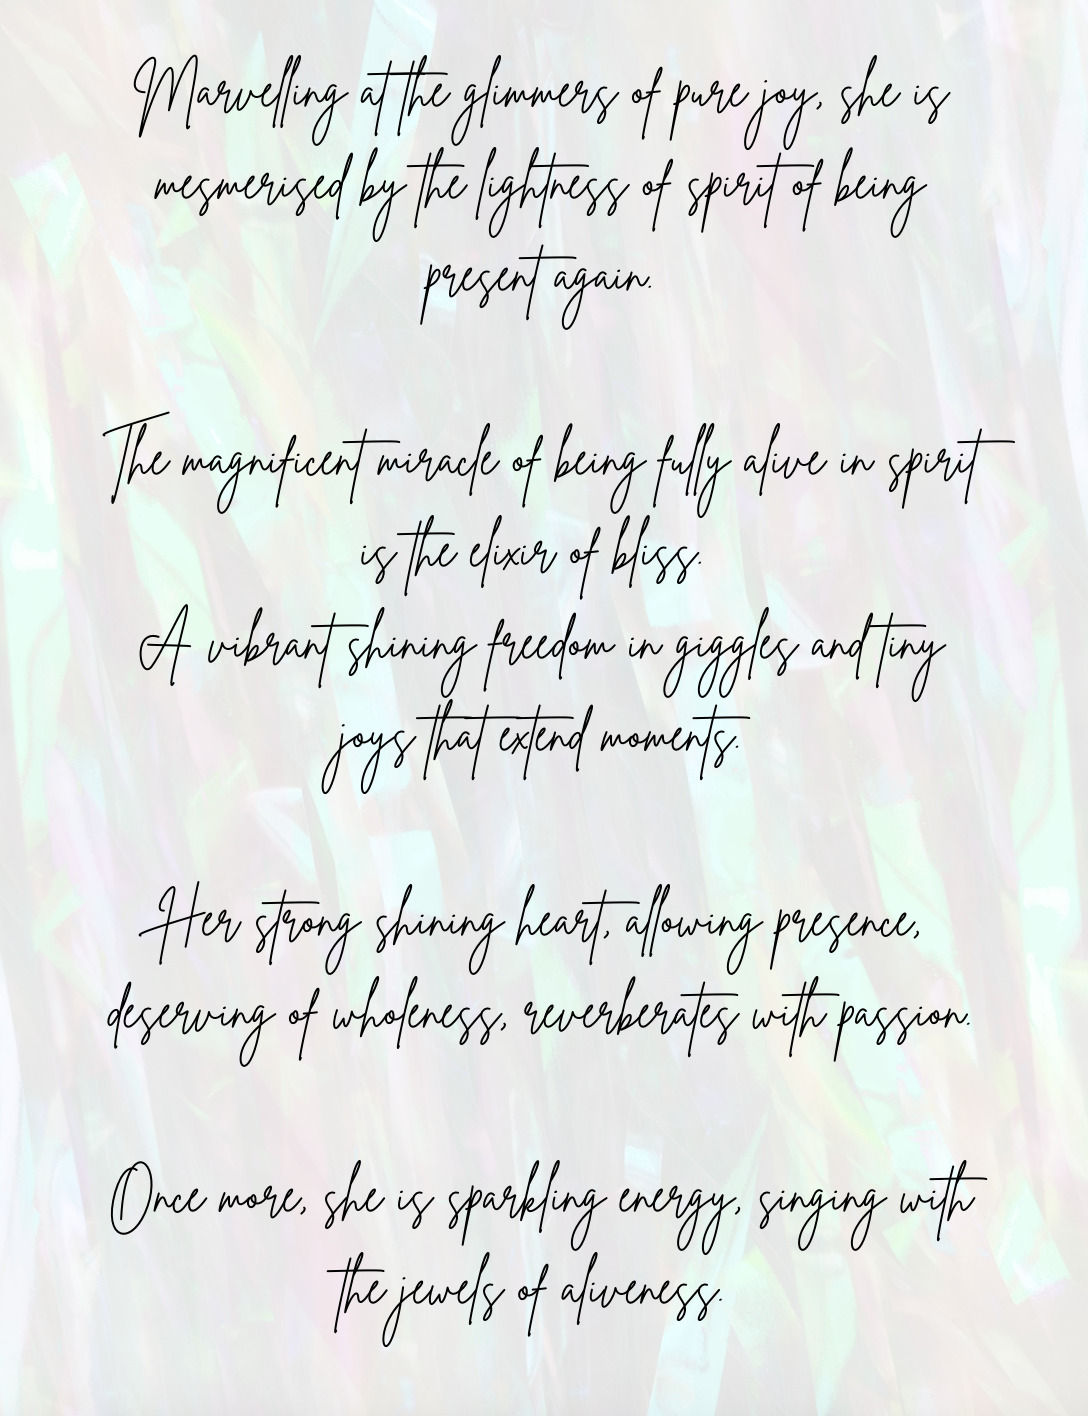 Marvelling at the glimmers of pure joy, she is
mesmerised by the lightness of spirit of being
present again.
The magnificent miracle of being fully alive in spirit
is the elixir of bliss.
A vibrant shining freedom in giggles and tiny
joys that extend moments.
Her strong shining heart, allowing presence,
deserving of wholeness, reverberates with passion.
Once more, she is sparkling energy, singing with
the jewels of aliveness.